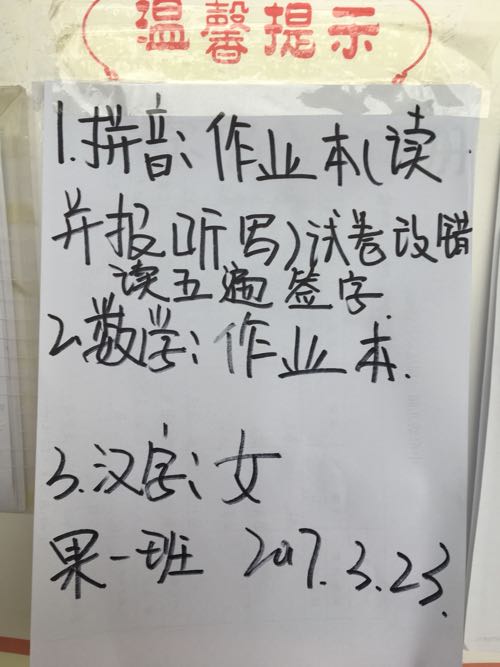 温馨提示
1.拼音:作业本(读
并报听写)试卷改错
读五遍签字.
2.数学:作业本.
3.汉字:女
果一班 2017.3.23.